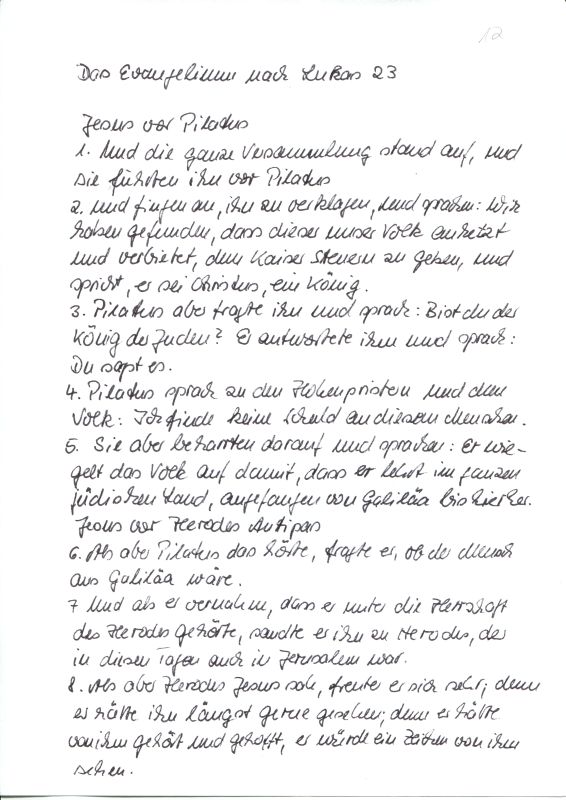 12
Das Evangelium nach Lukas 23
Jesus vor Pilatus
1. Und die ganze Versammlung stand auf, und
sie führten ihn vor Pilatus
2. und fingen an, ihn zu verklagen, und sprachen: Wir
haben gefunden, dass dieser unser Volk aufhetzt
und verbietet, dem Kaiser Steuern zu geben, und
spricht, er sei Christus, ein König.
3. Pilatus aber fragte ihn und sprach: Bist du der
König der Juden? Er antwortete ihm und sprach:
Du sagst es.
4. Pilatus sprach zu den Hohenpriestern und dem
Volk: Ich finde keine Schuld an diesem Menschen.
5. Sie aber beharrten darauf und sprachen: Er wie-
gelt das Volk auf damit, dass er lehrt im ganzen
jüdischen Land, angefangen von Galiläa bis hierher.
Jesus vor Herodes Antipas
6. Als aber Pilatus das hörte, fragte er, ob der Mensch
aus Galiläa wäre.
7 Und als er vernahm, dass er unter die Herrschaft
des Herodes gehörte, sandte er ihn zu Herodes, der
in diesen Tagen auch in Jerusalem war.
8. Als aber Herodes Jesus sah, freute er sich sehr; denn
er hätte ihn längst gerne gesehen; denn er hatte
von ihm gehört und gehofft, er würde ein Zeichen von ihm
sehen.